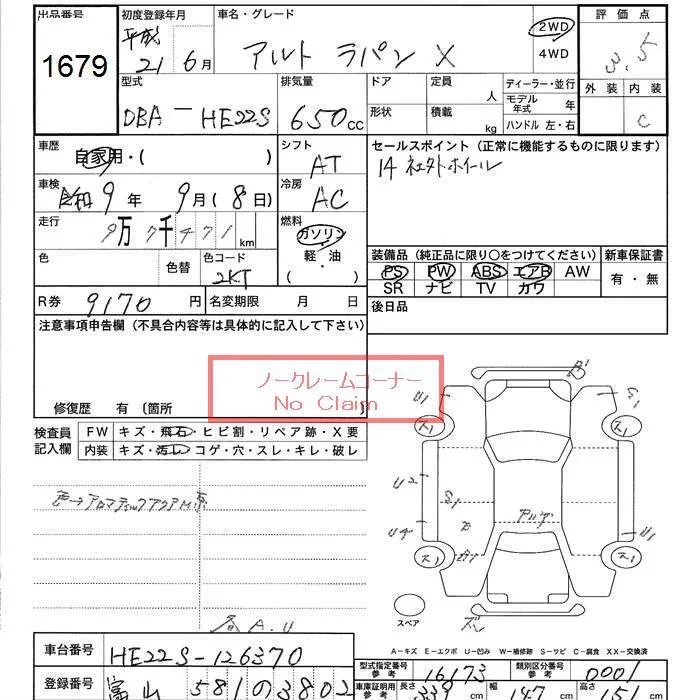 出品番号 初度登録年月 車名・グレード 評価点
1679 平成 21年 6月 アルト ラパン X 2WD 4WD 3.5
型式 排気量 ドア 定員 人 ディーラー・並行 外装 内装
DBA-HE22S 650cc 形状 積載 kg モデル年式 年 ハンドル 左・右 C
車歴 自家用・( ) シフト AT セールスポイント(正常に機能するものに限ります)
14 社外ホイール
車検 令和 9年 9月(8日) 冷房 AC
走行 9万7千471km 燃料 ガソリン 軽・油 ( )
色 色替 色コード 2KT
装備品(純正品に限り〇をつけてください) 新車保証書
PS PW ABS エアB AW 有・無
SR ナビ TV カワ
R券 9170円 名変期限 月 日 後日品
注意事項申告欄(不具合内容等は具体的に記入して下さい)
ノークレームコーナー
No Claim
修復歴 有 (箇所 )
検査員記入欄 FW キズ・飛石・ヒビ割・リペア跡・X要
内装 キズ・汚レ・コゲ・穴・スレ・キレ・破レ
色→アロマティックアクアM系
各A.U
A1
U1 S1 ス1 ス1
U2 S1
U4 アルア U1
ス1 ス1
スペア
A-キズ E-エクボ U-凹み W-補修跡 S-サビ C-腐食 XX-交換済
車台番号 HE22S-126370
型式指定番号 参考 16173 類別区分番号 参考 0001
登録番号 富山 581 の 3802
車庫証明用 参考 長さ 339cm 幅 147cm 高さ 151cm